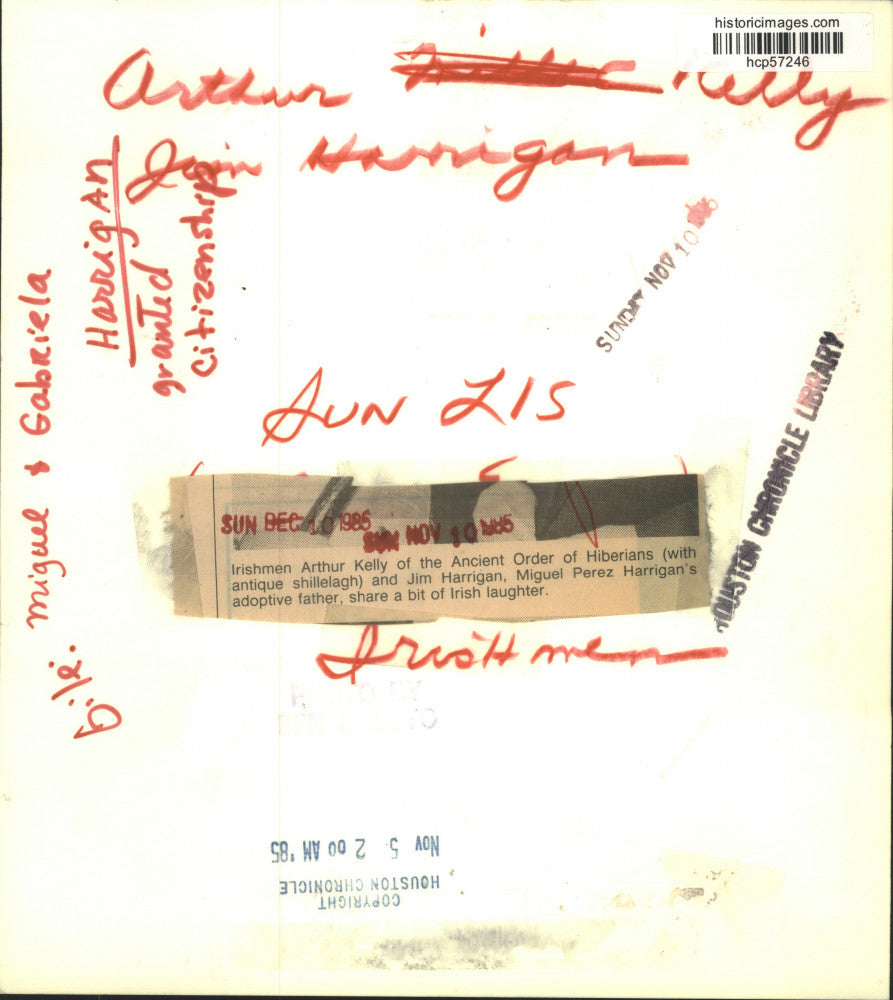 historicimages.com
hcp57246
Arthur Kelly
Jim Harrigan
Harrigan
granted
citizenship
SUNDAY NOV 10
Miguel & Gabriela
SUN LIS
HOUSTON CHRONICLE LIBRARY
SUN DEC 10 1985
SUN NOV 10 1985
Irishmen Arthur Kelly of the Ancient Order of Hiberians (with
antique shillelagh) and Jim Harrigan, Miguel Perez Harrigan's
adoptive father, share a bit of Irish laughter.
Irishmen
Nov 5 2 00 AM '85
HOUSTON CHRONICLE
COPYRIGHT